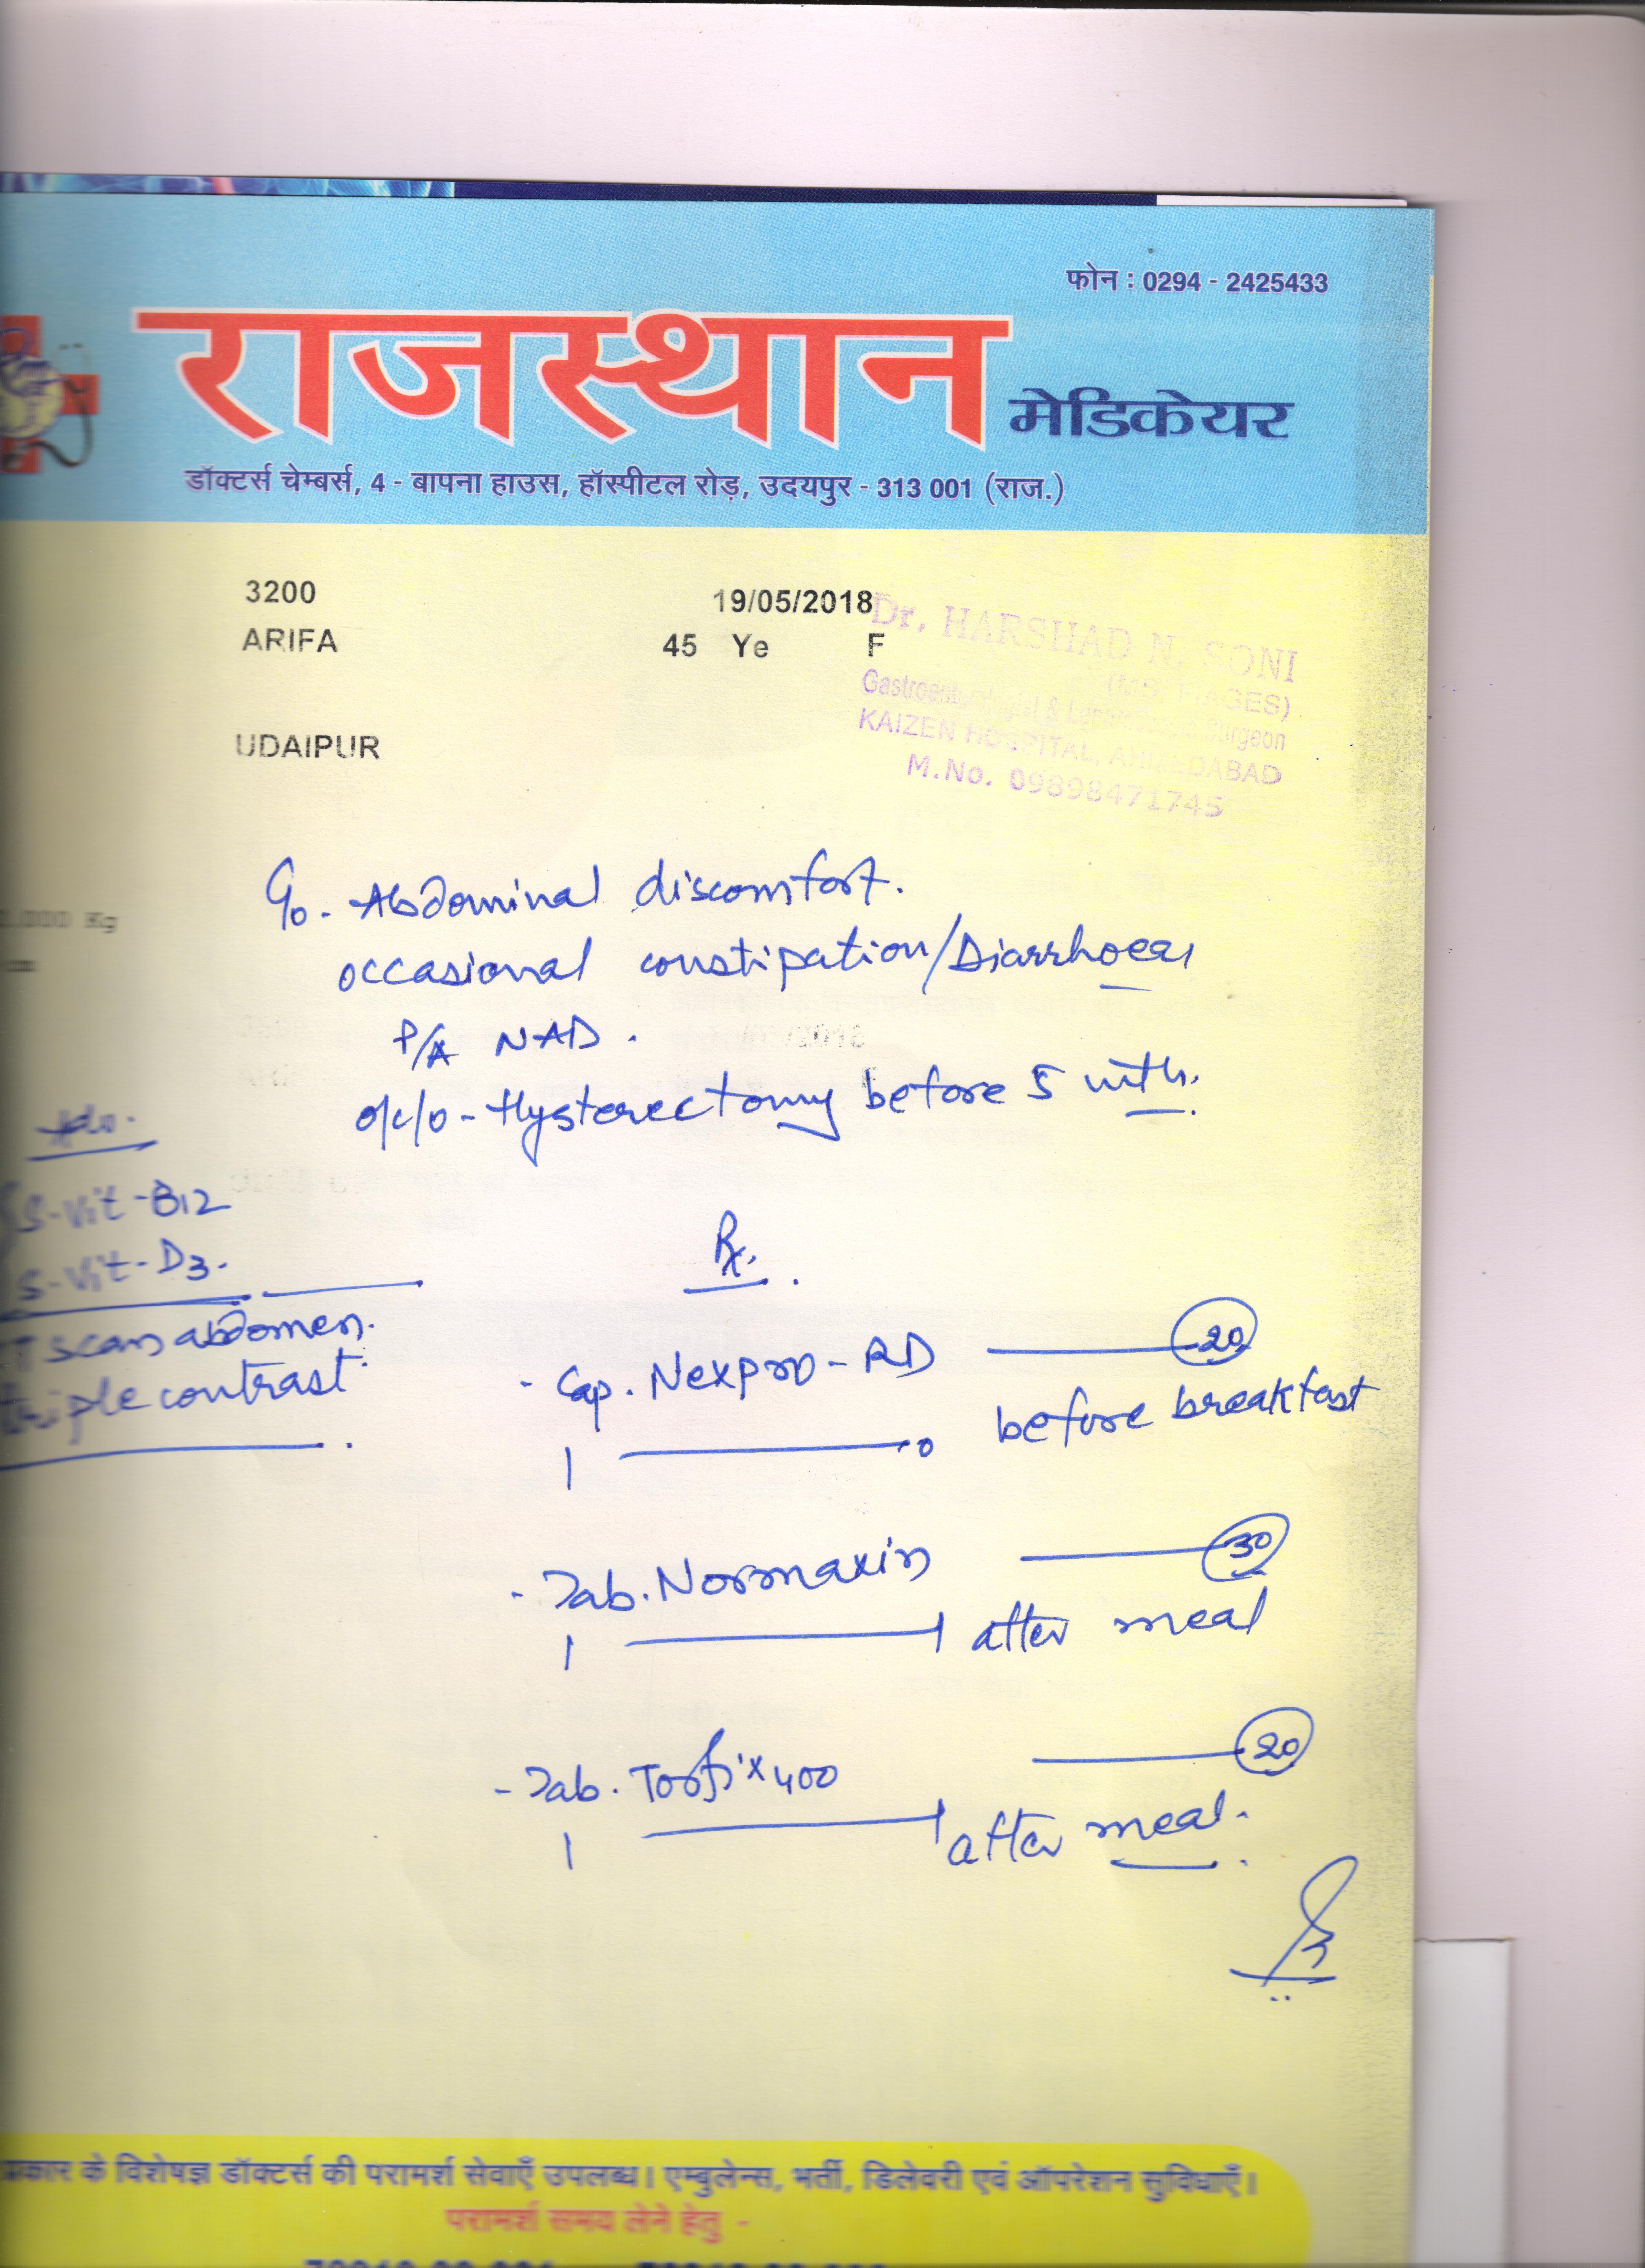 फोन : 0294 - 2425433
राजस्थान मेडिकेयर
डॉक्टर्स चेम्बर्स, 4 - बापना हाउस, हॉस्पीटल रोड़, उदयपुर - 313 001 (राज.)
3200
19/05/2018
ARIFA
45 Ye F
UDAIPUR
Dr. HARSHAD N. SONI
Surgeon
KAIZEN HOSPITAL, AHMEDABAD
M.No. 09898471745
C/o - Abdominal discomfort.
occasional constipation/Diarrhoea
.000 Kg
P/A NAD.
o/c/o - Hysterectomy before 5 mth.
S-Vit-B12
S-Vit-D3.
Rx.
scan abdomen.
triple contrast
- Cap. Nexpro-RD 20
1 0 before breakfast
- Tab. Normaxin 30
1 1 after meal
- Tab. Torfix 400 20
1 1 after meal.
प्रकार के विशेषज्ञ डॉक्टर्स की परामर्श सेवाएँ उपलब्ध। एम्बुलेन्स, भर्ती, डिलेवरी एवं ऑपरेशन सुविधाएँ।
परामर्श समय लेने हेतु -